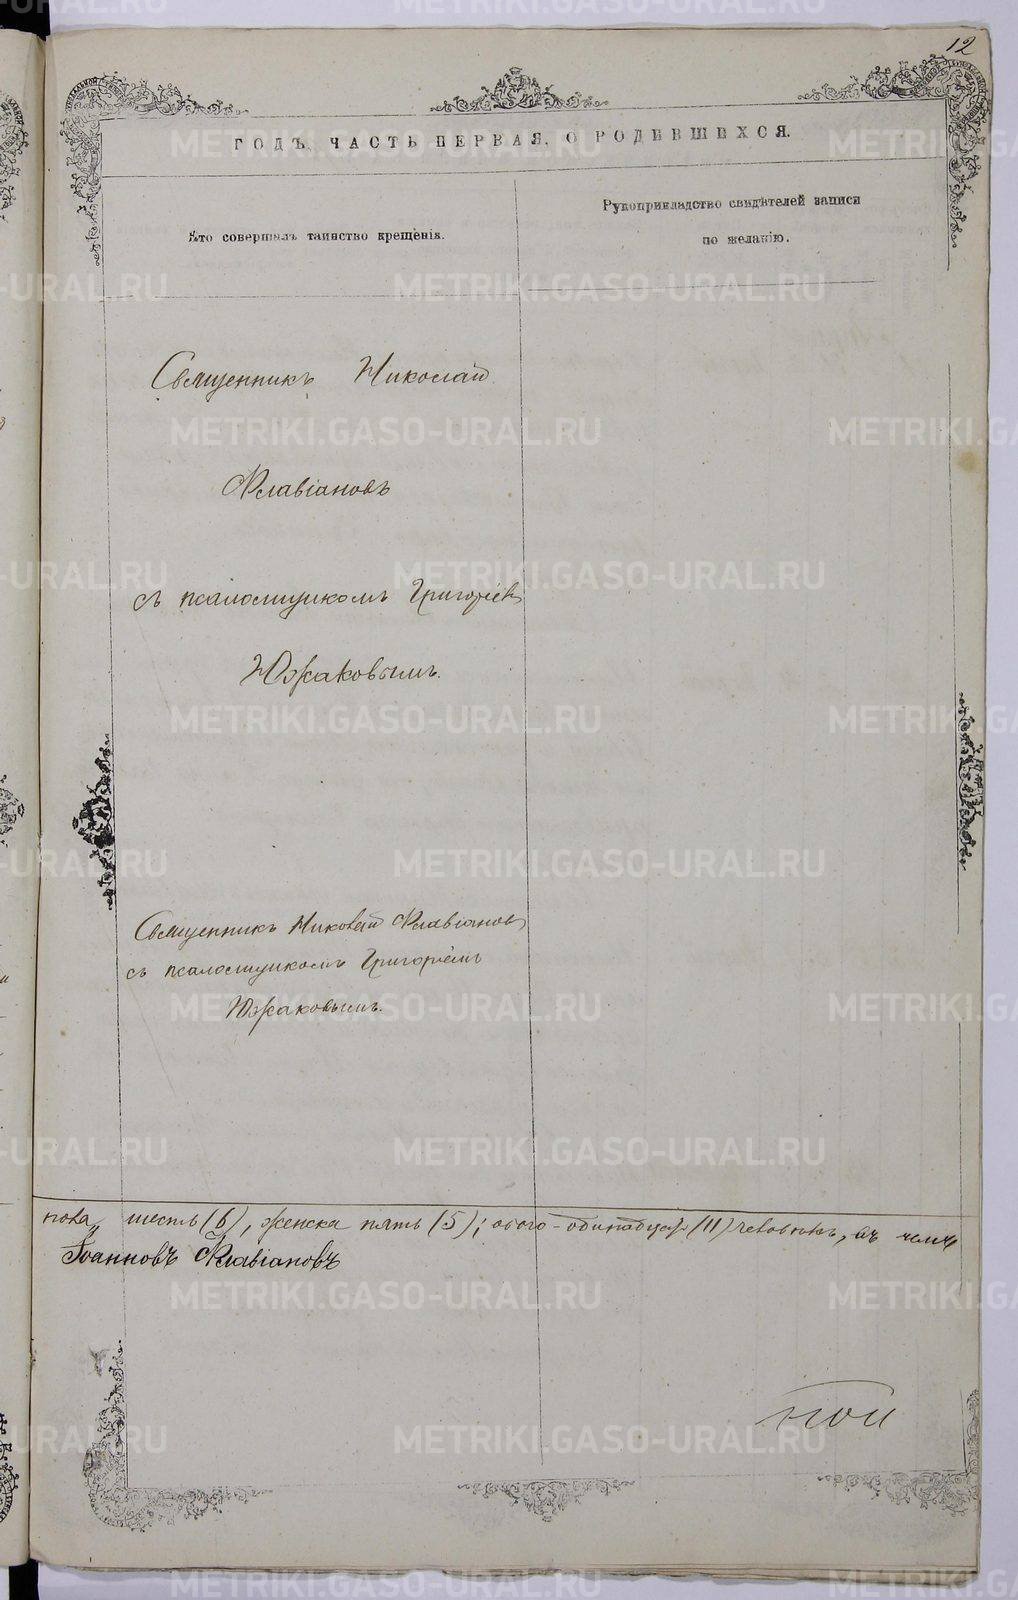 12
ГОДЪ, ЧАСТЬ ПЕРВАЯ, О РОДИВШИХСЯ.
Кто совершалъ таинство крещенія.
Рукоприкладство свидѣтелей записи
по желанію.
Священникъ Николай
Флавіановъ
съ псаломщикомъ Григоріемъ
Южаковымъ.
Священникъ Николай Флавіановъ
съ псаломщикомъ Григоріемъ
Южаковымъ.
пола шесть (6), женска пять (5); обоего - одинадцать (11) человѣкъ, въ чемъ
Іоанновъ Флавіановъ
METRIKI.GASO-URAL.RU